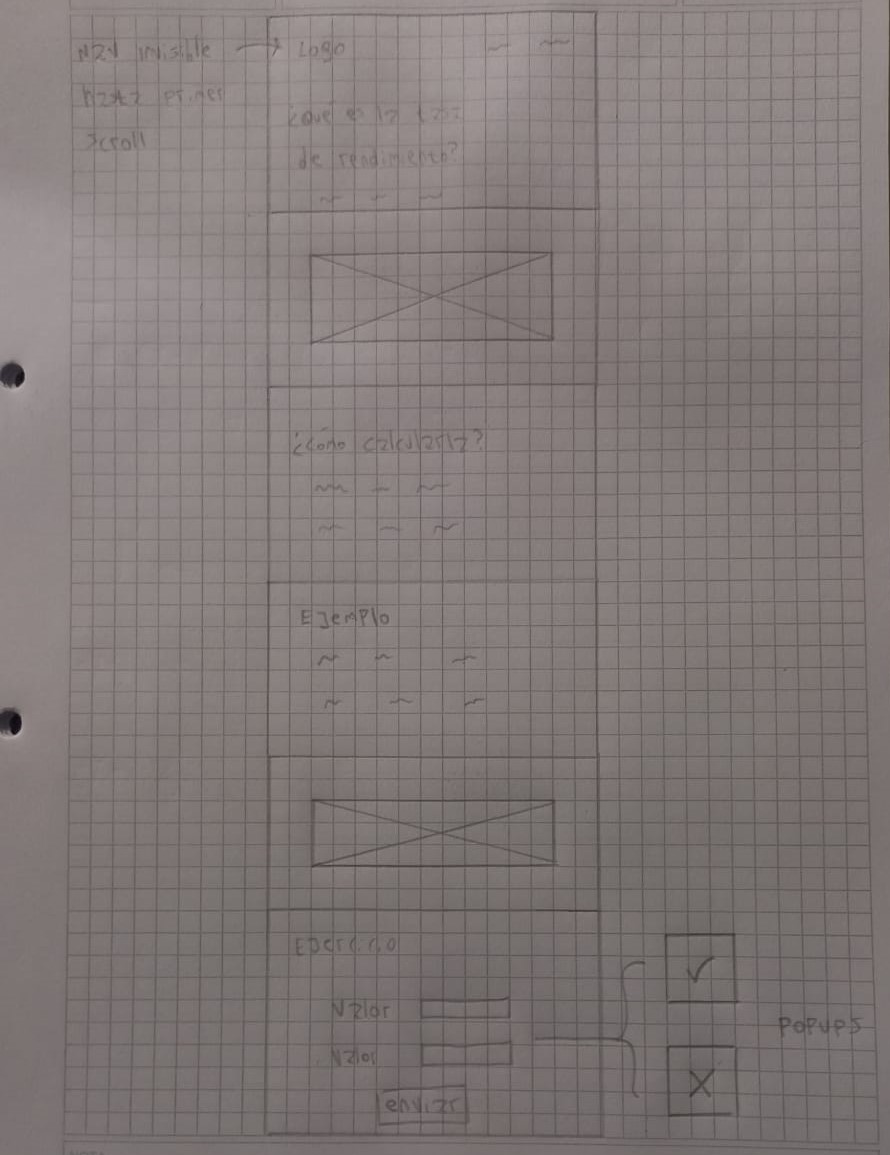 Nav invisible → Logo
hasta primer
scroll
¿Qué es la tasa
de rendimiento?
¿Cómo calcularla?
EJemPlo
EJercicio
Valor
Valor
enviar
PoPuPs